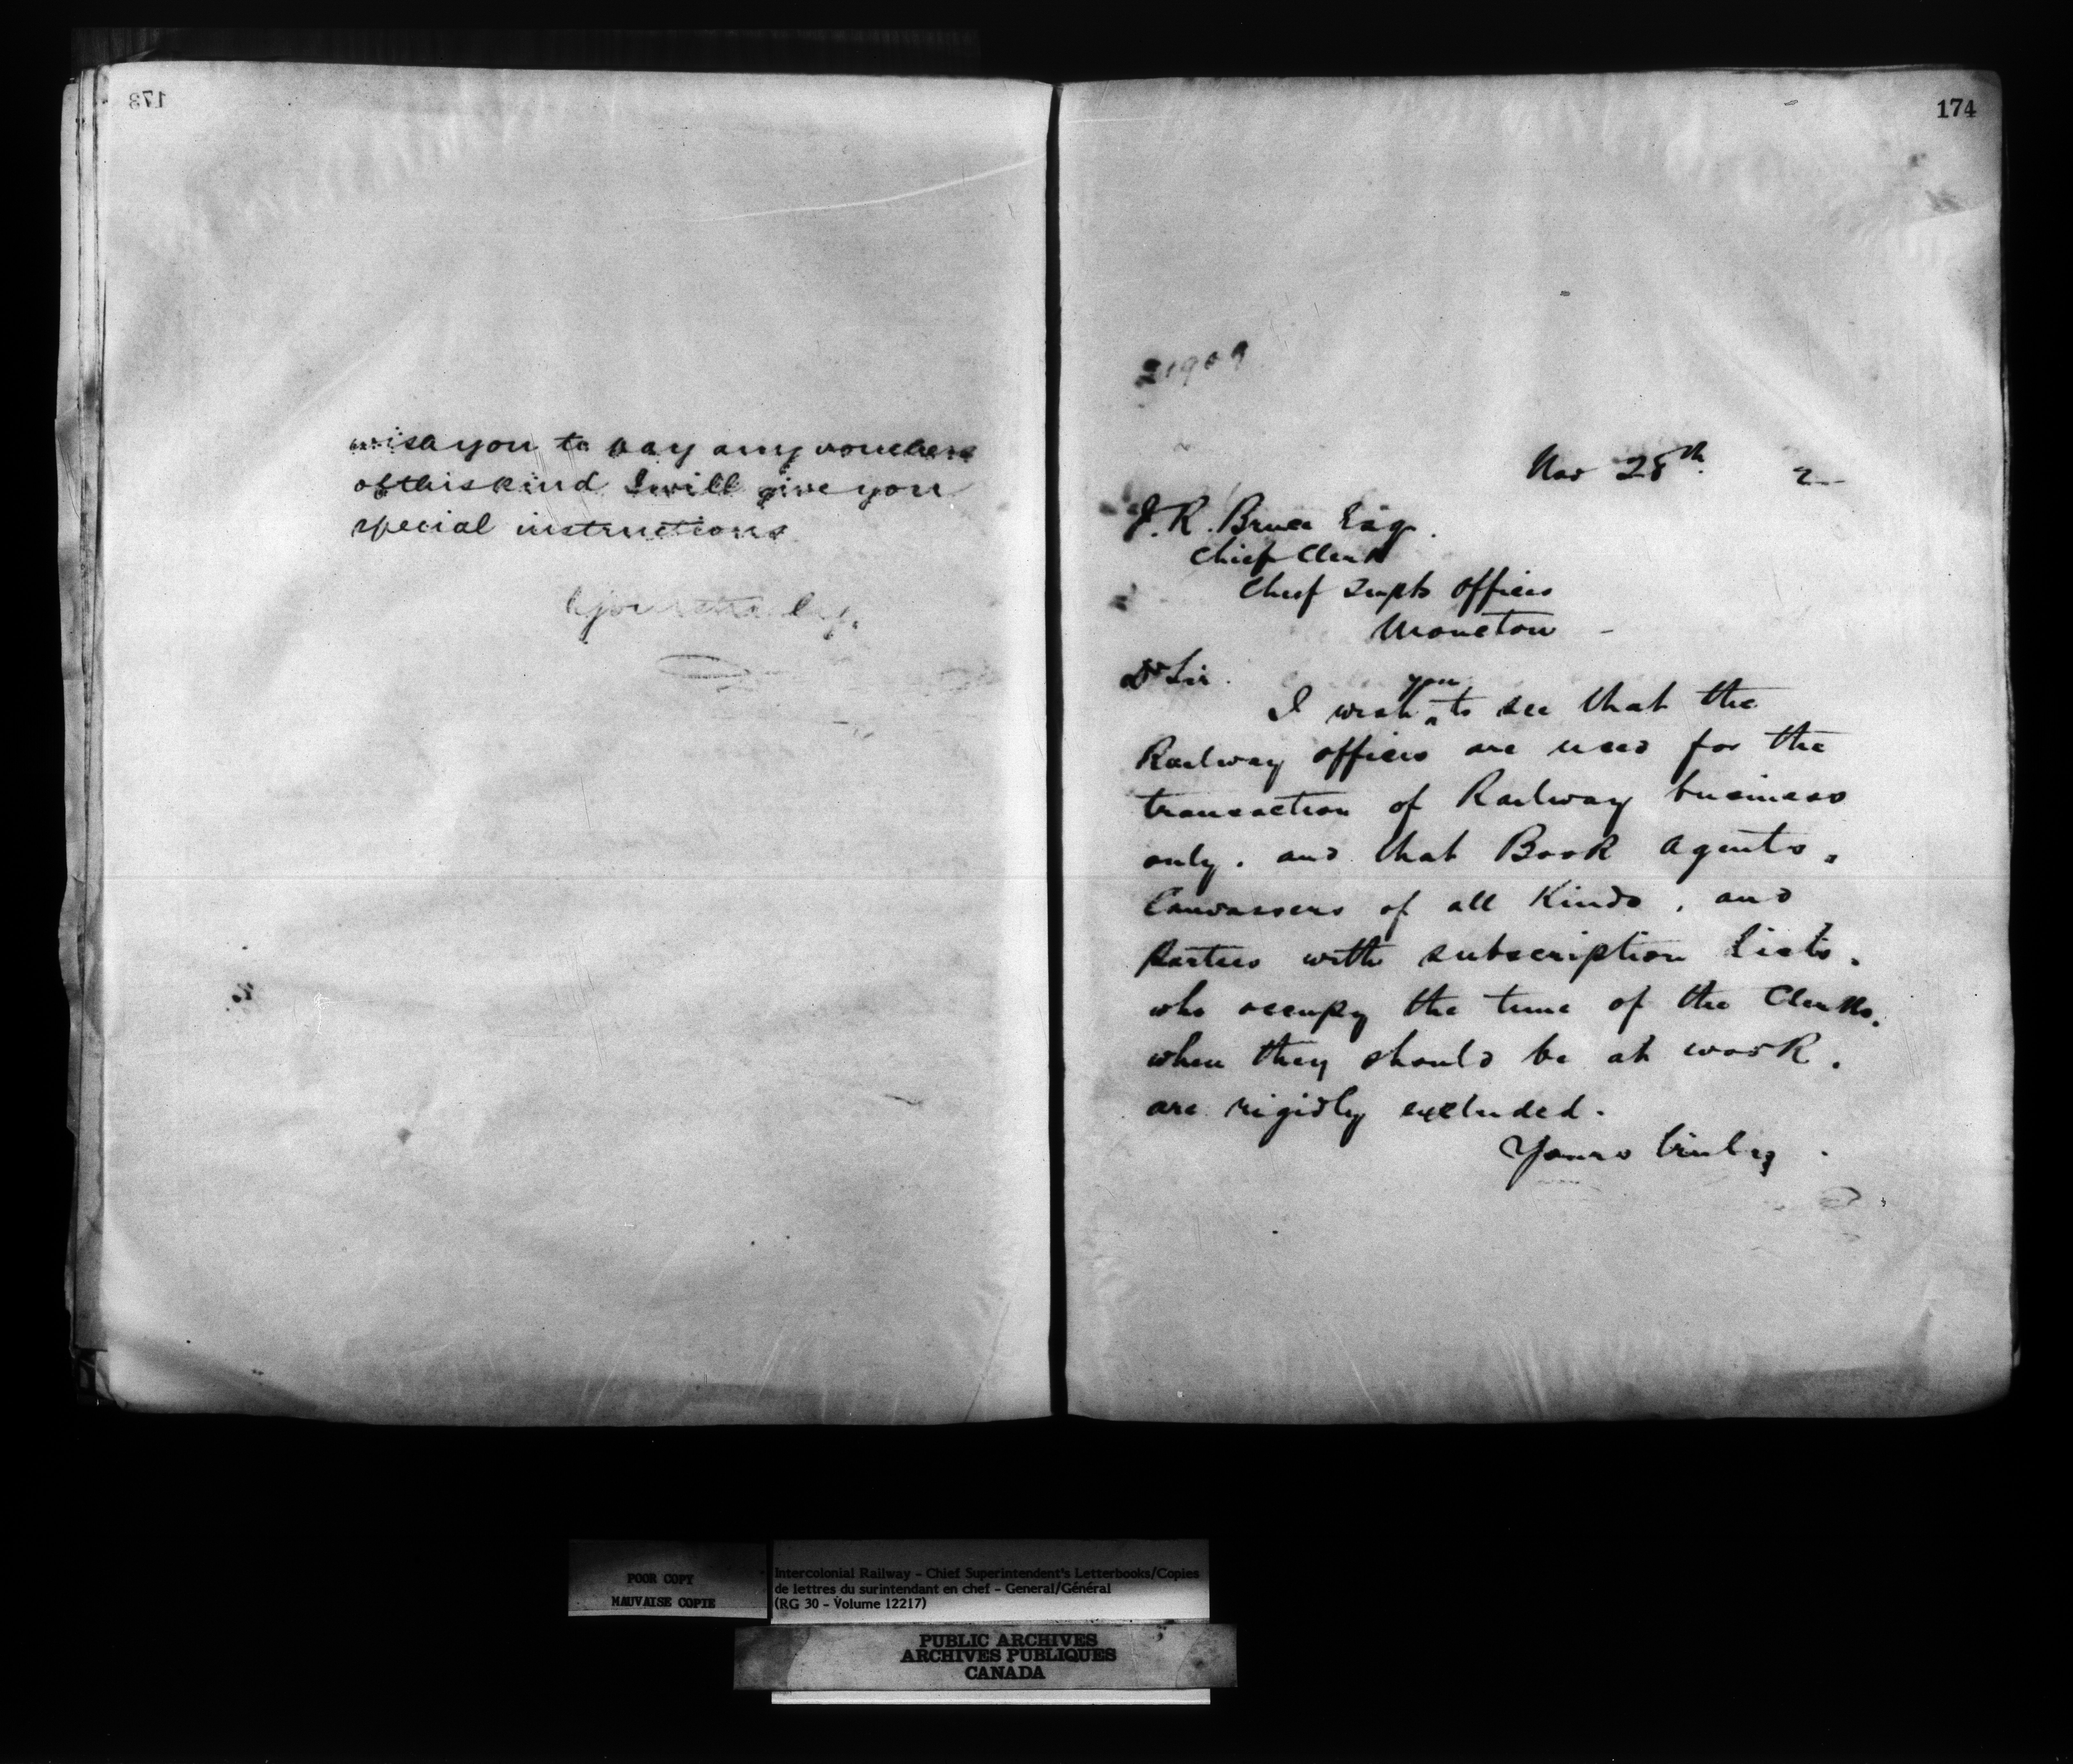 173
wish you to pay any vouchers
of this kind I will give you
special instructions
Yours truly.
174
21909
Nov 28th 2
J. R. Bruce Esq.
Chief Clerk
Chief Supts Offices
Moncton -
Dr Sir.
I wish you to see that the
Railway offices are used for the
transaction of Railway business
only. and that Book Agents,
Canvassers of all Kinds, and
Parties with subscription lists,
who occupy the time of the Clerks,
when they should be at work,
are rigidly excluded.
Yours truly
POOR COPY
MAUVAISE COPIE
Intercolonial Railway - Chief Superintendent's Letterbooks/Copies
de lettres du surintendant en chef - General/Général
(RG 30 - Volume 12217)
PUBLIC ARCHIVES
ARCHIVES PUBLIQUES
CANADA